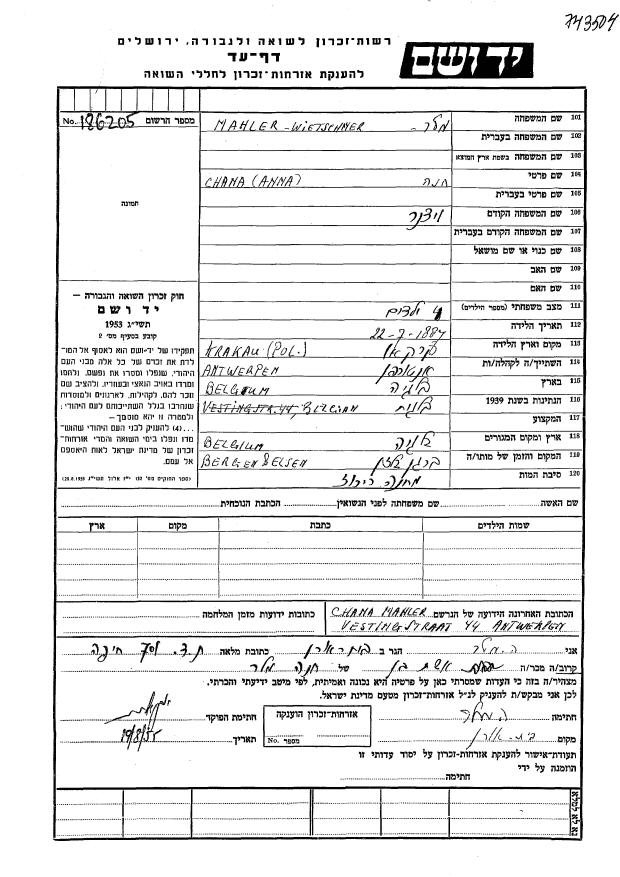 743504
רשות-זכרון לשואה ולגבורה, ירושלים
דף-עד
להענקת אזרחות-זכרון לחללי השואה
יד ושם
מספר הרשום No. 186205
תמונה
101 שם המשפחה MAHLER-WIETSCHNER מלר-
102 שם המשפחה בעברית
103 שם המשפחה בשפת ארץ המוצא
104 שם פרטי CHANA (ANNA) חנה
105 שם פרטי בעברית
106 שם המשפחה הקודם ויצנר
107 שם המשפחה הקודם בעברית
108 שם כנוי או שם מושאל
109 שם האב
110 שם האם
111 מצב משפחתי (מספר הילדים) 4 ילדים
112 תאריך הלידה 22-7-1884
113 מקום וארץ הלידה KRAKAU (POL.) קרקאו
114 השתייך/ה לקהלה/ות ANTWERPEN אנטורפן
115 בארץ BELGIUM בלגיה
116 הנתינות בשנת 1939 VESTINGSTR. 44, BELGIAN בלגית
117 המקצוע
118 ארץ ומקום המגורים BELGIUM בלגיה
119 המקום והזמן של מותו/ה BERGEN BELSEN ברגן בלזן
120 סיבת המות מחנה ריכוז
חוק זכרון השואה והגבורה —
יד ושם
תשי״ג 1953
קובע בסעיף מס׳ 2
תפקידו של יד-ושם הוא לאסוף אל המו-
לדת את זכרם של כל אלה מבני העם
היהודי, שנפלו ומסרו את נפשם, נלחמו
ומרדו באויב הנאצי ובעוזריו, ולהציב שם
וזכר להם, לקהילות, לארגונים ולמוסדות
שנחרבו בגלל השתייכותם לעם היהודי;
ולמטרה זו יהא מוסמך —
...(4) להעניק לבני העם היהודי שהוש-
מדו ונפלו בימי השואה והמרי אזרחות-
זכרון של מדינת ישראל לאות היאספם
אל עמם.
שם האשה שם משפחתה לפני הנשואין הכתבת הנוכחית
שמות הילדים כתבת מקום ארץ
הכתובת האחרונה הידועה של הנרשם CHANA MAHLER
VESTINGSTRAAT 44 ANTWERPEN
כתובות ידועות מזמן המלחמה
אני ה. מלר הגר ב כתובת מלאה ת.ד. חיפה
קרוב/ה מכר/ה אשת בן של חנה מלר
מצהיר/ה בזה כי העדות שמסרתי כאן על פרטיה היא נכונה ואמיתית, לפי מיטב ידיעתי והכרתי.
לכן אני מבקש/ת להעניק לנ״ל אזרחות-זכרון מטעם מדינת ישראל.
חתימה ה. מלר
אזרחות-זכרון הוענקה
מספר No.
חתימת הפוקד
מקום
תאריך 19/8/55
תעודת-אישור להענקת אזרחות-זכרון על יסוד עדותי זו
הוזמנה על ידי
חתימה:
נא לא למלא